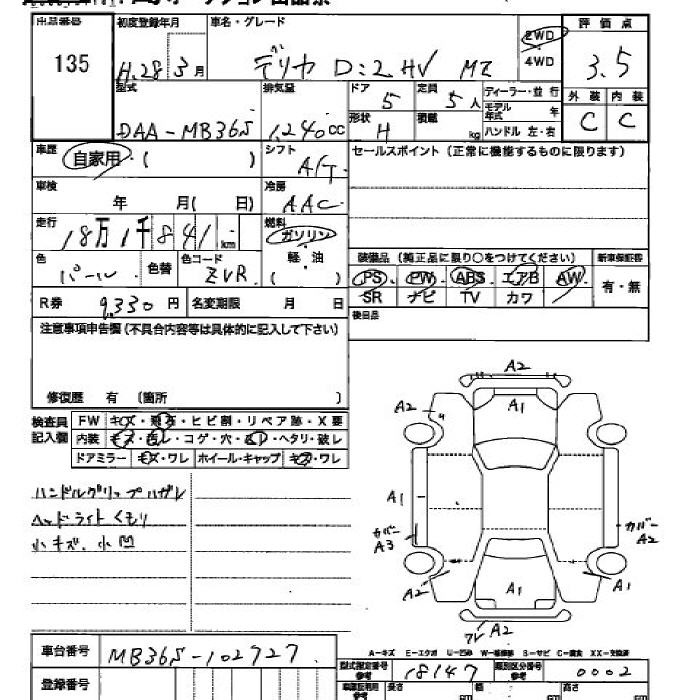 出品番号 初度登録年月 車名・グレード 2WD 評価点
135 H.28 3月 デリカ D:2 HV MZ 4WD 3.5
型式 排気量 ドア 5 定員 5人 ディーラー・並行 外装 内装
DAA-MB36S 1,240cc 形状 H 積載 kg モデル年式 年 C C
ハンドル 左・右
車歴 自家用・( ) シフト A/T セールスポイント(正常に機能するものに限ります)
車検 年 月( 日) 冷房 AAC
走行 18万1千841km 燃料 ガソリン
軽・油
( )
色 パール 色替 色コード ZVR 装備品(純正品に限り○をつけてください) 新車保証書
PS・PW・ABS・エアB・AW 有・無
SR ナビ TV カワ
R券 9,330円 名変期限 月 日 後日品
注意事項申告欄(不具合内容等は具体的に記入して下さい)
修復歴 有 (箇所 )
検査員記入欄 FW キズ・飛石・ヒビ割・リペア跡・X要
内装 キズ・汚レ・コゲ・穴・凹・ヘタリ・破レ
ドアミラー キズ・ワレ ホイール・キャップ キズ・ワレ
ハンドルグリップハガレ
ヘッドライトくもり
小キズ、小凹
A2
A2 A1
A1
カバー A3 カバー A2
A2 A1 A1
ワレ A2
A-キズ E-エクボ U-凹み W-補修跡 S-サビ C-腐食 XX-交換済
車台番号 MB36S-102727
登録番号
型式指定番号 参考 18147 類別区分番号 参考 0002
長さ cm 幅 cm 高さ cm